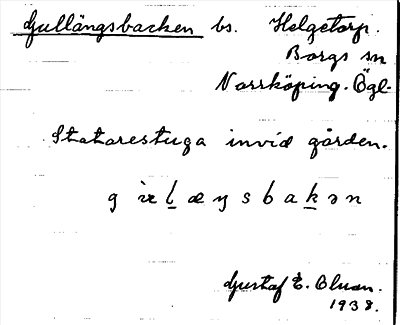 Gullängsbacken bs. Helgetorp.
Borgs sn
Norrköping. Ögl.
Statarestuga invid gården.
Gustaf E.
1938.